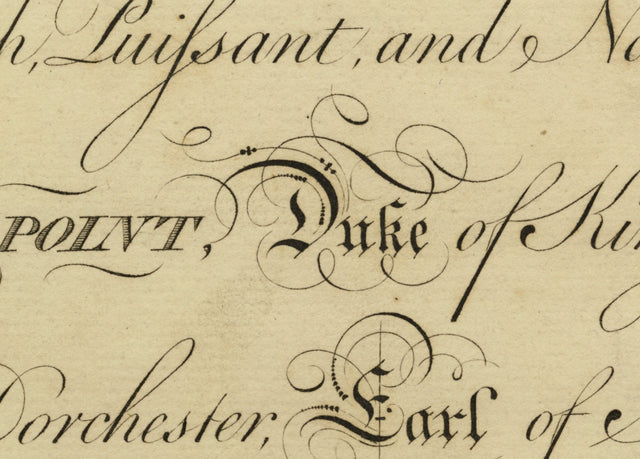 h, Puiſsant, and No
POINT, Duke of Kin
Dorchester, Earl of